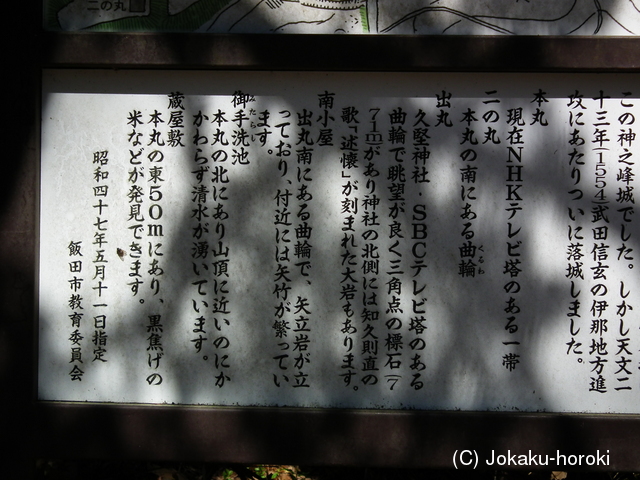 二の丸
この神之峰城でした。しかし天文二
十三年(1554)武田信玄の伊那地方進
攻にあたりついに落城しました。
本丸
現在NHKテレビ塔のある一帯
二の丸
本丸の南にある曲輪
くるわ
出丸
久堅神社、SBCテレビ塔のある
曲輪で眺望が良く三角点の標石(7
71m)があり神社の北側には知久則直の
歌「述懐」が刻まれた大岩もあります。
南小屋
出丸南にある曲輪で、矢立岩が立
っており、付近には矢竹が繁ってい
ます。
御手洗池
みたらし
本丸の北にあり山頂に近いのにか
かわらず清水が湧いています。
蔵屋敷
本丸の東50mにあり、黒焦げの
米などが発見できます。
昭和四十七年五月十一日指定
飯田市教育委員会
(C) Jokaku-horoki